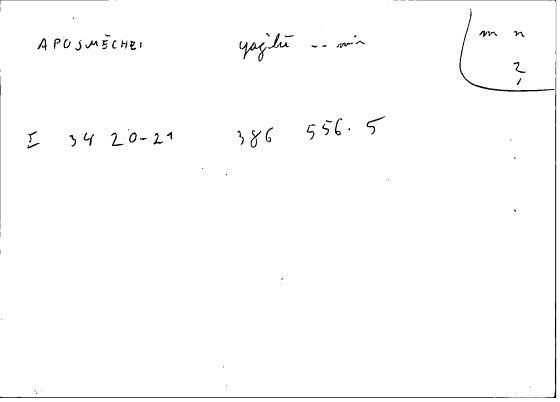 APOSMĒCHEI yagilū -- min m n
2
I 34 20-21 386 556.5